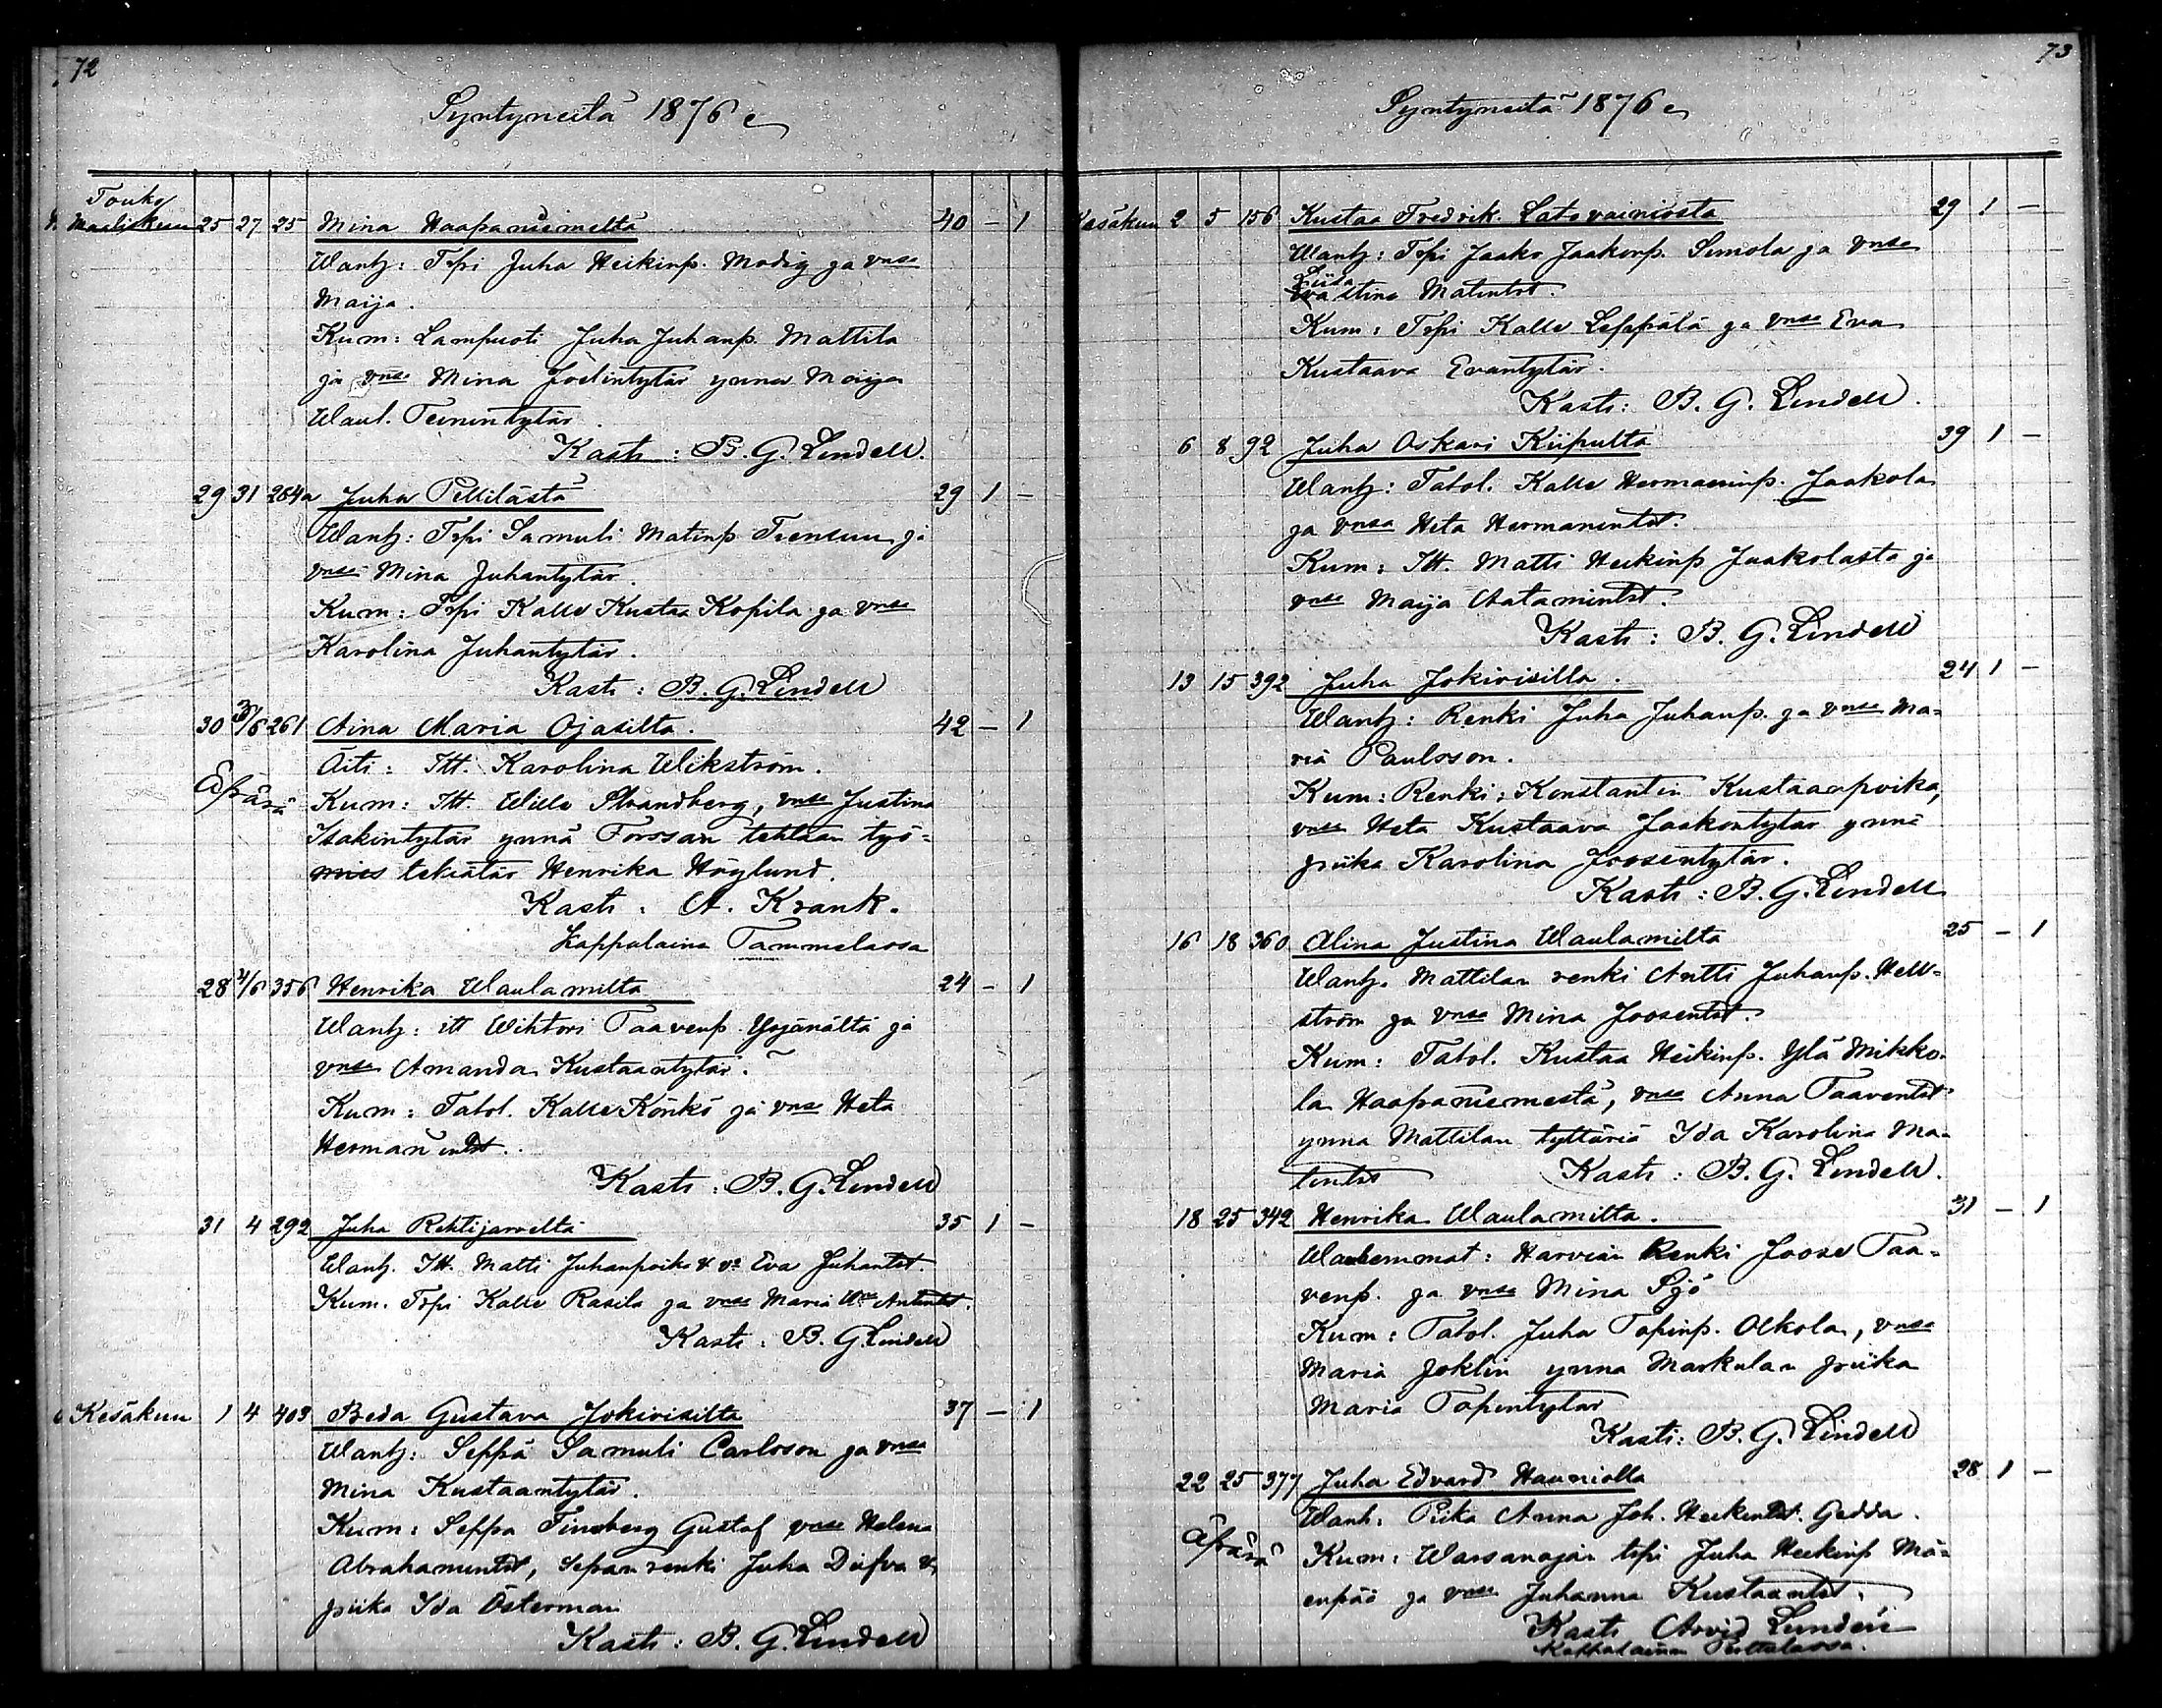 72
Syntyneitä 1876
Touko
Maaliskuun 25 27 25 Mina Haapaniemeltä 40 - 1
Wanh: Tspi Juha Heikinp. Modig ja vnsa
Maija.
Kum: Lampuoti Juha Juhanp. Mattila
ja vnsa Mina Joelintytär ynnä Maija
Waul. Teinintytär.
Kasti: B. G. Lindell.
29 31 264a Juha Pellilästä 29 1 -
Wanh: Tspi Samuli Matinp. ja
vnsa Mina Juhantytär.
Kum: Tspi Kalle Kustaa Kopila ja vnsa
Karolina Juhantytär.
Kasti: B. G. Lindell
30 30/6 261 Aina Maria Ojasilta. 42 - 1
Äiti: Itt. Karolina Wikström.
Äpärä
Kum: Itt. Wille Strandberg, vnsa Justina
Isakintytär ynnä Forssan tehtaan työ-
mies tekiätär Henrika Höglund.
Kasti: A. Krank.
Kappalaina Tammelassa
28 4/6 356 Henrika Waulamilta 24 - 1
Wanh: itt Wihtori Taavenp. Yrjänältä ja
vnsa Amanda Kustaantytär.
Kum: Talol. Kalle Könkö ja vnsa Heta
Hermanintst.
Kasti: B. G. Lindell
31 4 292 Juha Rehtijärveltä 35 1 -
Wanh. Itt. Matti Juhanpoika & vs Eva Juhantst.
Kum. Tspi Kalle Rasila ja vnsa Maria Antintst.
Kasti: B. G. Lindell
Kesäkuu 1 4 403 Beda Gustava Jokivisiltä 37 - 1
Wanh: Seppä Samuli Carlsson ja vnsa
Mina Kustaantytär.
Kum: Seppä Finsberg Gustaf vnsa Helena
Abrahamintst, Sepän renki Juha Dufva &
piika Ida Österman
Kasti: B. G. Lindell
73
Syntyneitä 1876
Kesäkuu 2 5 156 Kustaa Fredrik Latovainiosta 29 1 -
Wanh: Tspi Jaako Jaakonp. Simola ja vnsa
Liisa
Eva Stina Matintst.
Kum: Tspi Kalle Leppälä ja vnsa Eva
Kustaava Evantytär.
Kasti: B. G. Lindell.
6 8 92 Juha Oskari Kiipulta 39 1 -
Wanh: Talol. Kalle Hermaninp. Jaakola
ja vnsa Heta Hermanintst.
Kum: Itt. Matti Heikinp Jaakolasta ja
vnsa Maija Aatamintst.
Kasti: B. G. Lindell
13 15 392 Juha Jokivisilla. 24 1 -
Wanh: Renki Juha Juhanp. ja vnsa Ma-
ria Paulsson.
Kum: Renki: Konstantin Kustaanpoika,
vnsa Heta Kustaava Jaakontytär ynnä
piika Karolina Joosentytär.
Kasti: B. G. Lindell
16 18 360 Alina Justina Waulamilta 25 - 1
Wanh. Mattilan renki Antti Juhanp. Hell-
ström ja vnsa Mina Joosentst.
Kum: Talol. Kustaa Heikinp. Ylä Mikko-
la Haapaniemestä, vnsa Anna Taaventst
ynnä Mattilan tyttäriä Ida Karolina Ma-
tintst Kasti: B. G. Lindell.
18 25 342 Henrika Waulamilta. 31 - 1
Wanhemmat: Harvian Renki Joose Taa-
venp. ja vnsa Mina Sjö
Kum: Talol. Juha Topinp. Olkola, vnsa
Maria Joklin ynnä Markulan piika
Maria Topintytär
Kasti: B. G. Lindell
22 25 377 Juha Edvard Hauniolla 28 1 -
Wanh: Piika Anna Joh. Heikintst. Gedda.
Äpärä
Kum: Warsanojan tspi Juha Heikinp Mä-
enpää ja vnsa Juhanna Kustaantst.
Kasti Arvid Lundén
Kappalainen Perttulassa.